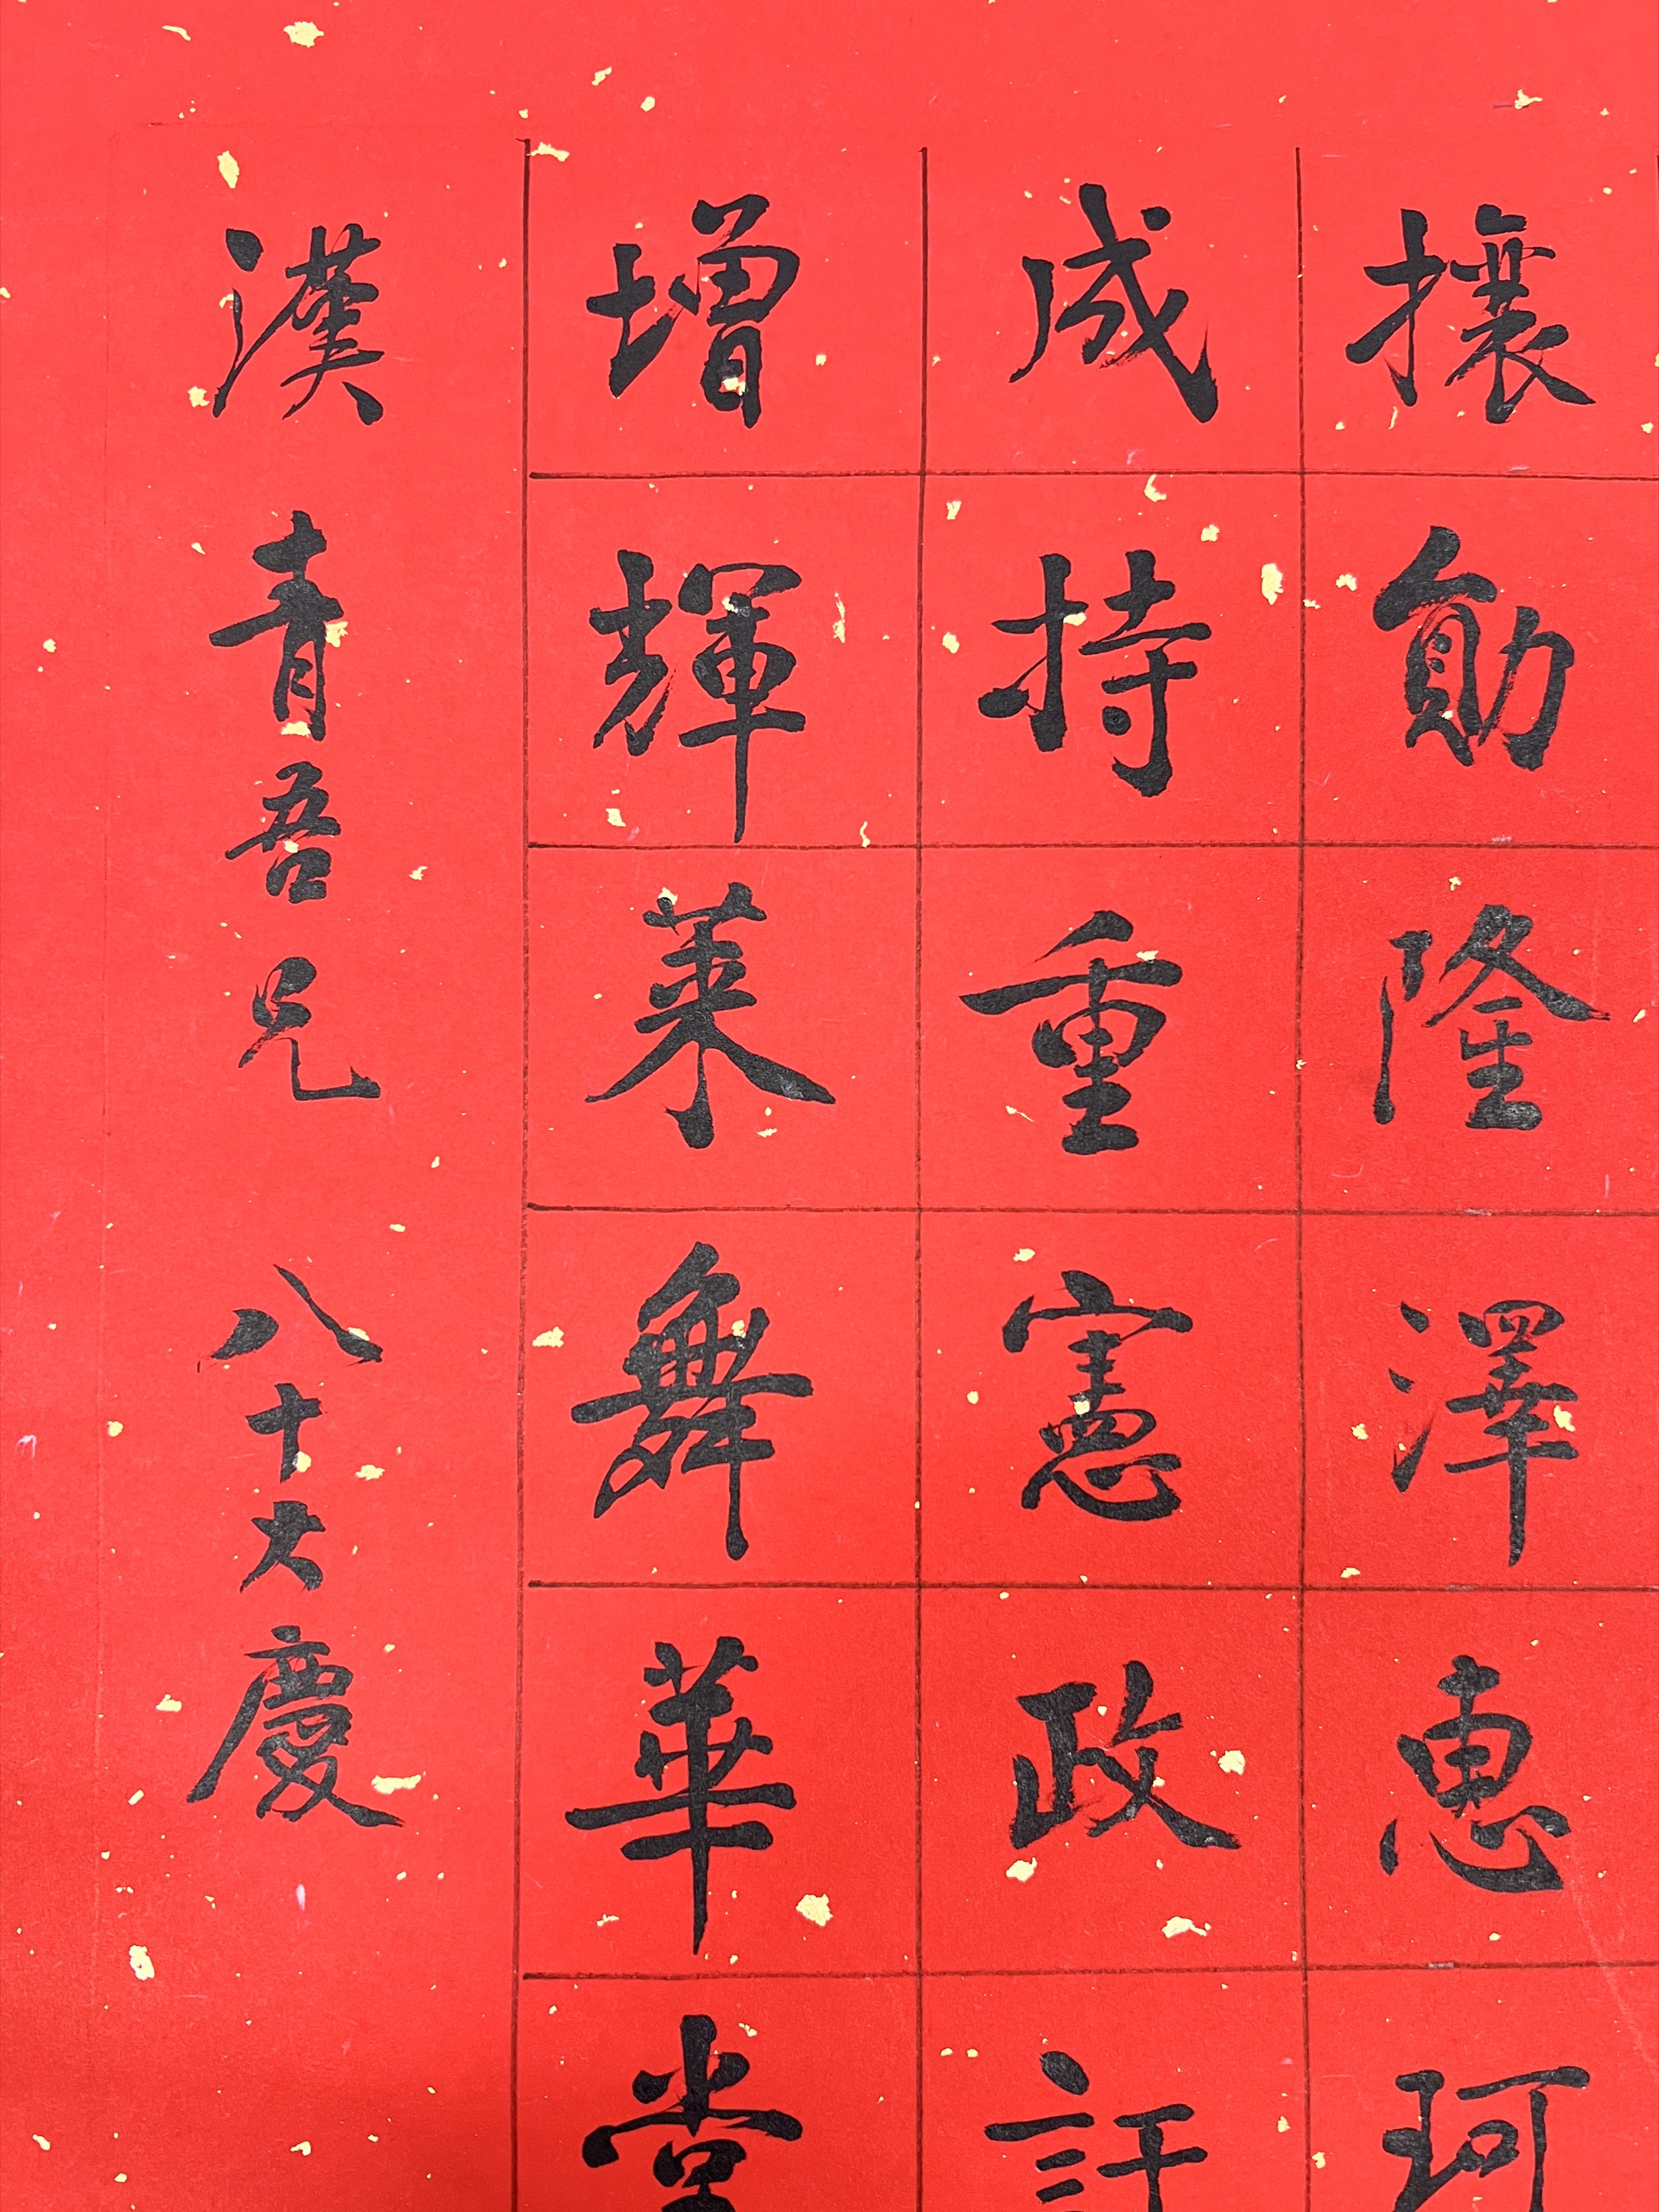 攘勛隆澤惠珂
成持重憲政訏
增輝萊舞華堂
漢青吾兄 八十大慶